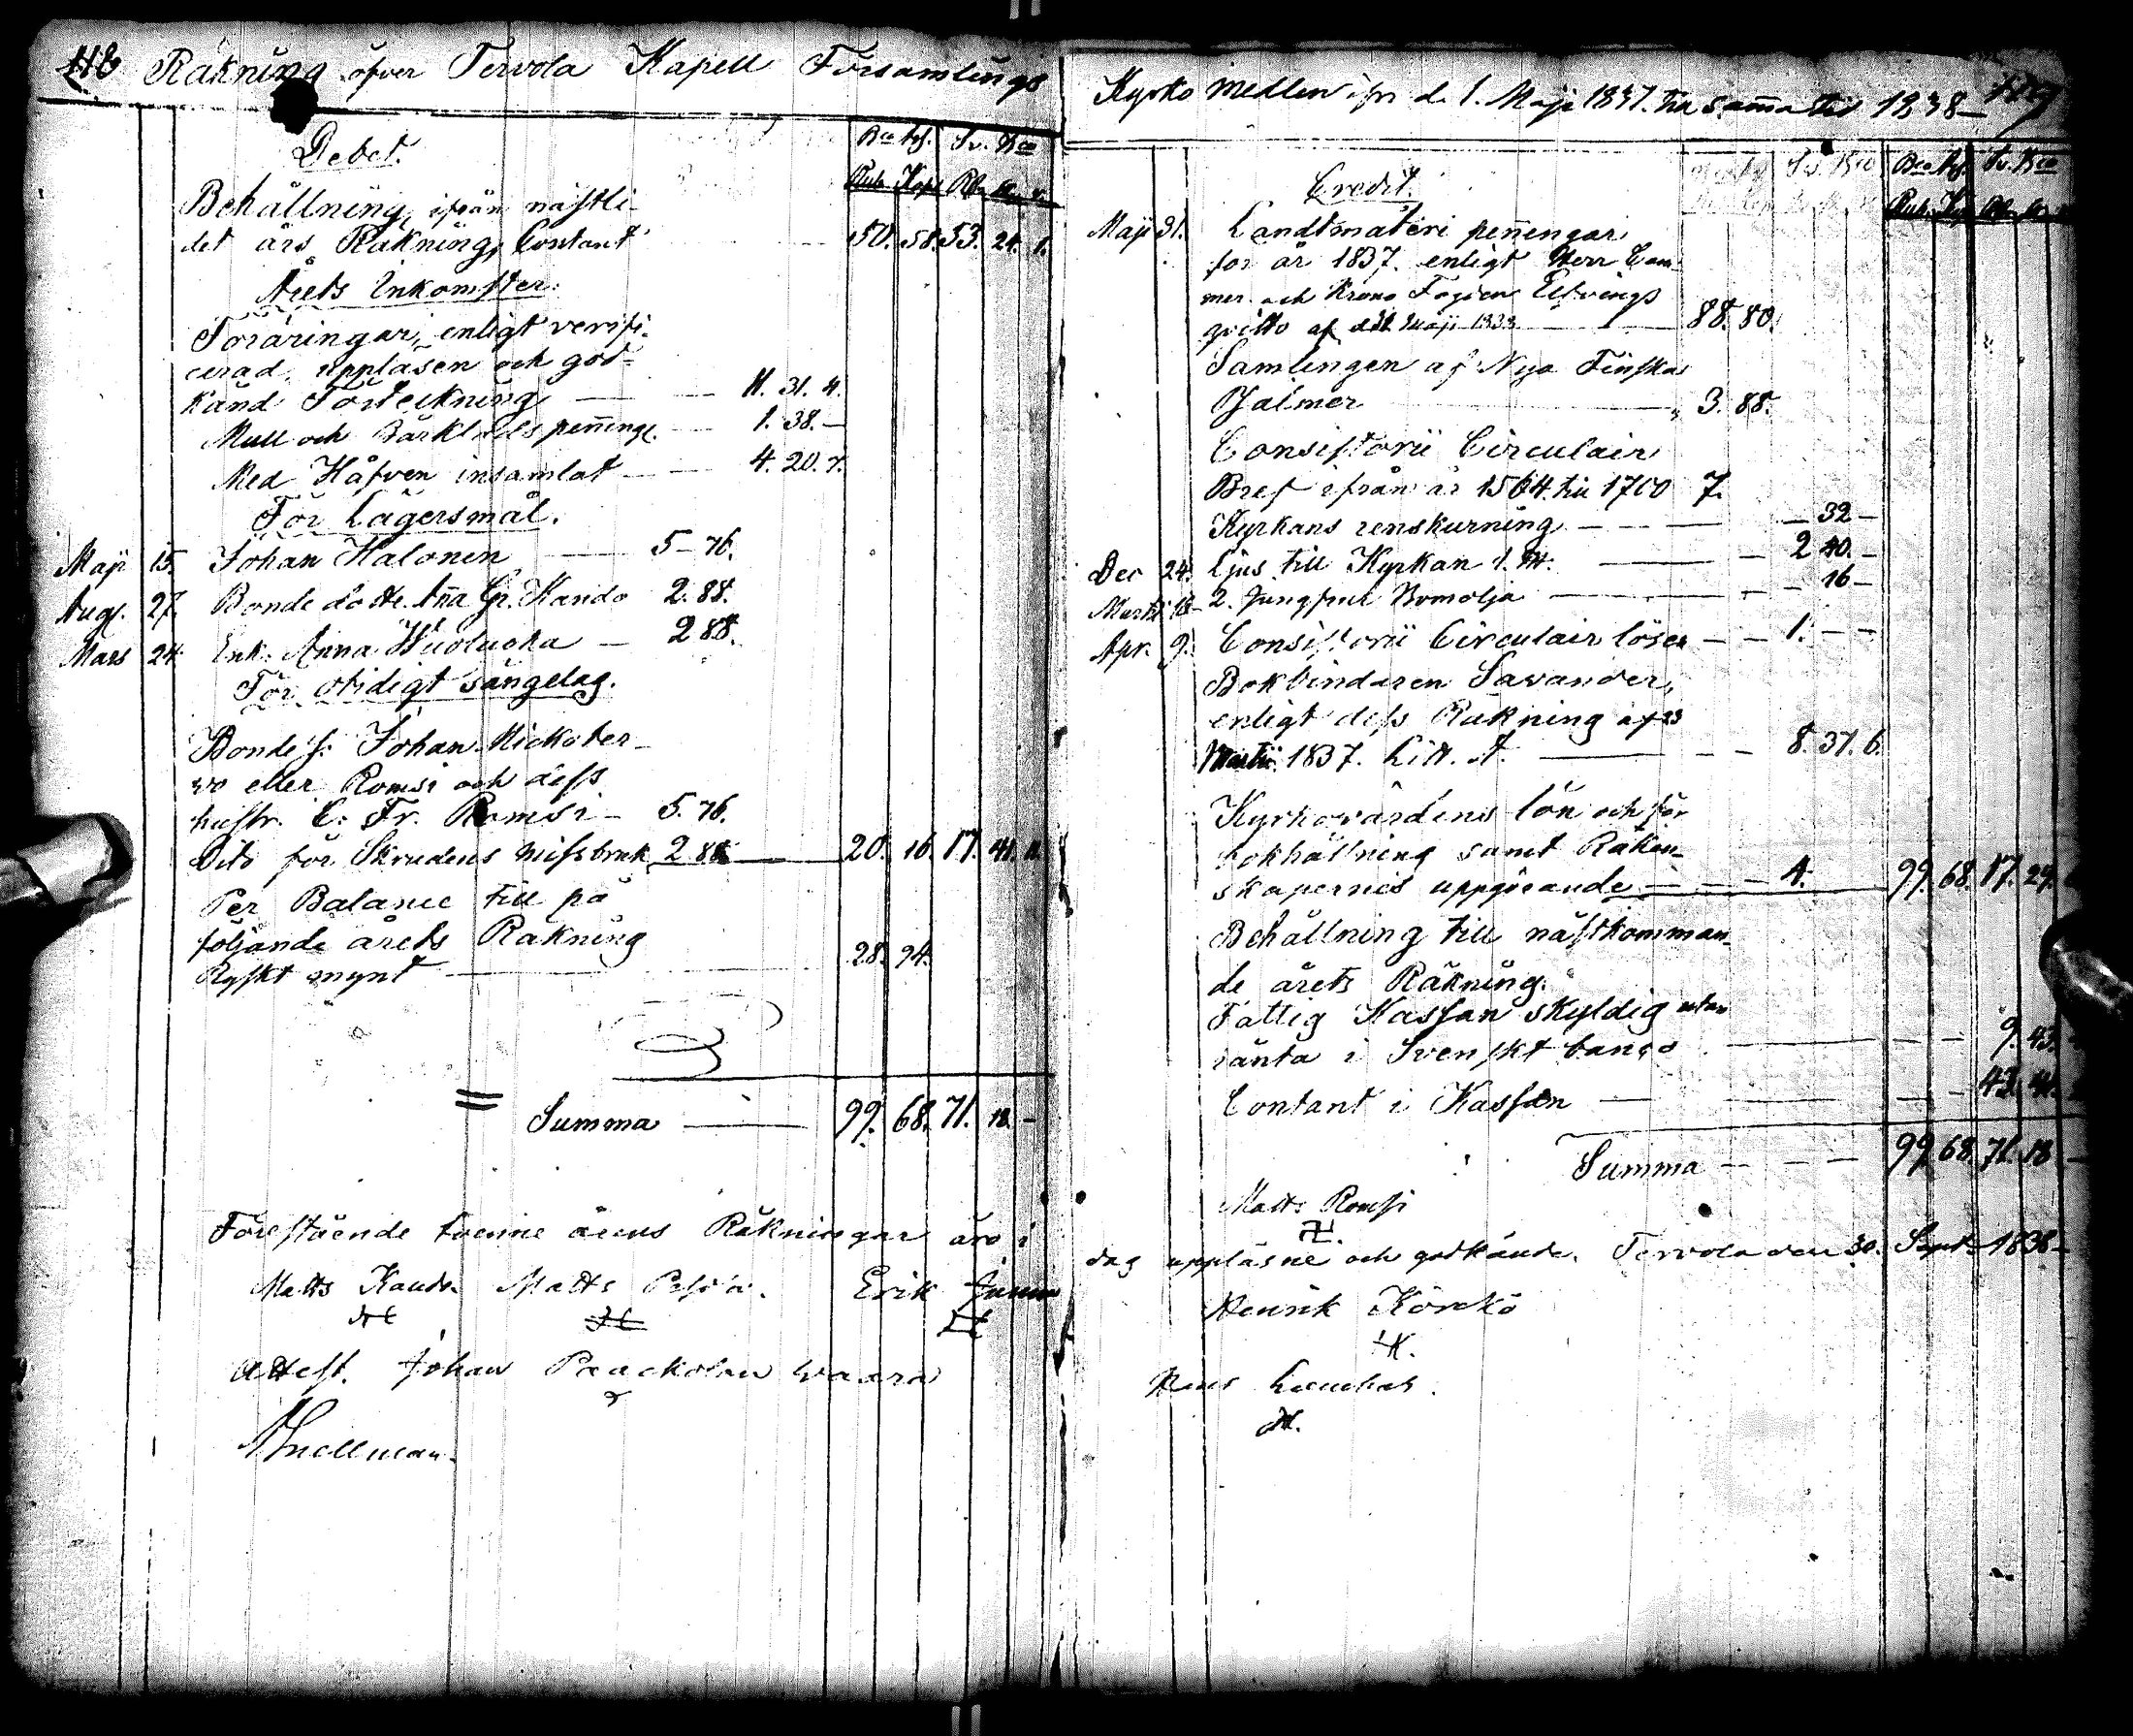 Räkning öfver Tervola Kapell Församlings
Debet.
Bco Ass. Sv. Bco
Rub. Kop. Rdr
Behållning, ifrån nästli-
det års Räkning, Contant 50. 58. 53. 24. 1.
Årets Inkomster.
Föräringar, enligt verifi-
cerad, uppläsen och god-
känd Förteckning 11. 31. 4.
Mull och Bårkläds peñinge. 1. 38. –
Med Håfven insamlat 4. 20. 7.
För Lägersmål.
Maji 15. Johan Halonen 5–76.
Aug. 27. Bonde dottr. Aña Gr. Kando 2. 88.
Mars 24. Enk. Anna 2 88.
För otidigt sängelag.
Bonde s. Johan
vo eller Romsi och dess
hustr. C. Fr. Romsi – 5. 76.
Dito för Skrudens missbruk 2 88 20. 16. 17. 41. 11.
Per Balance till på
följande årets Räkning
Ryskt mynt 28. 94.
Summa 99. 68. 71. 18. –
Förestående tvenne årens Räkningar äro i
Matts Kando. Matts Erik
Attest. Johan
Snellman.
Kyrko medlen ifrn d. 1. Maji 1837. till samma tid 1838–
Credit.
Bco Ass. Sv. Bco
Maji 31. Landtmäteri peñengar
för år 1837. enligt Herr Cam-
mer och Krono Fogden Elfvings
qvitto af d. 31 Maji 1838 88. 80.
Samlingen af Nya Finska
Psalmer 3. 88.
Consistorii Circulair
Bref ifrån år 1564. till 1700 7.
Kyrkans renskurning – 32 –
Dec 24. Ljus till Kyrkan 1. 2 40. –
Martii 18 2. Jungfrur Bomolja – 16 –
Apr. 9. Consistorii Circulair lösen 1. – –
Bokbindaren Savander,
enligt dess Räkning af
Martii 1837. Litt. A. 8. 37. 6.
Kyrkovärdens lön och för
bokhållning samt Räken-
skapernes uppgörande 4. 99. 68. 17. 29.
Behållning till nästkomman-
de årets Räkning.
Fattig Kassan skyldig utan
ränta i Svenskt banco 9. 43.
Contant i Kassan 43.
Summa 99 68 71. 18 –
Matts Romsi
dag uppläsne och godkände. Tervola den 30. Sept. 1838–
Henrik